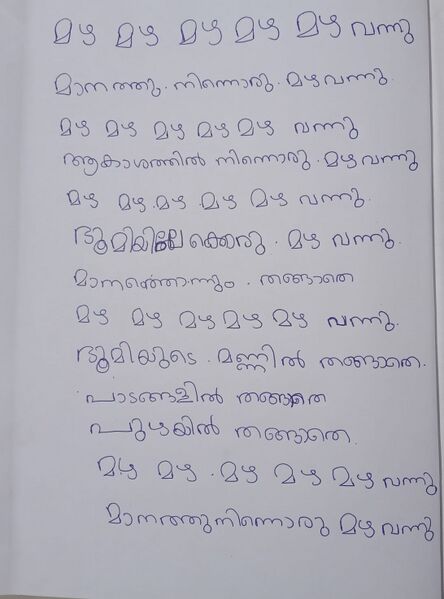 മഴ മഴ മഴ മഴ മഴ വന്നു
മാനത്തു. നിന്നൊരു. മഴ വന്നു.
മഴ മഴ മഴ മഴ മഴ വന്നു
ആകാശത്തിൽ നിന്നൊരു. മഴ വന്നു
മഴ മഴ. മഴ. മഴ മഴ വന്നു.
ഭൂമിയിലേക്കൊരു. മഴ വന്നു.
മാനത്തൊന്നും. തങ്ങാതെ
മഴ മഴ മഴ മഴ മഴ വന്നു.
ഭൂമിയുടെ. മണ്ണിൽ തങ്ങാതെ.
പാടങ്ങളിൽ തങ്ങാതെ
പുഴയിൽ തങ്ങാതെ.
മഴ മഴ. മഴ മഴ മഴ വന്നു
മാനത്തുനിന്നൊരു മഴ വന്നു